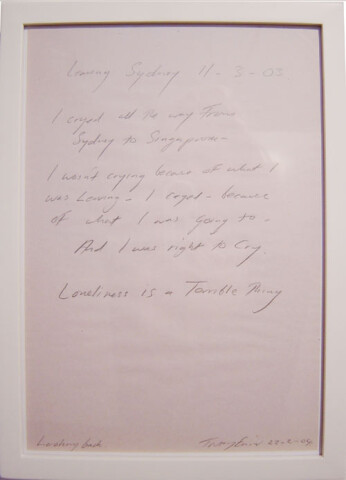 Leaving Sydney 11-3-03
I cryed all the way From
Sydney to Singapore -
I wasn't crying because of what I
was Leaving - I cryed - because
of what I was going to -
And I was right to Cry.
Loneliness is a Terrible Thing
Looking back
Tracy Emin